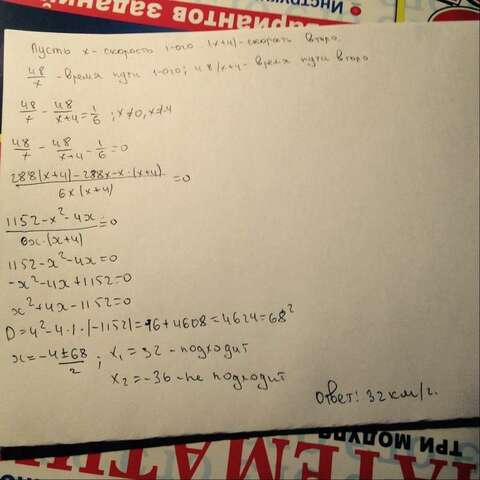 вариантов заданий
• Инструкци
Пусть x - скорость 1-ого (x+4) - скорость второ.
48/x - время пути 1-ого; 48/x+4 - время пути второ
48/x - 48/x+4 = 1/6 ; x≠0, x≠4
48/x - 48/x+4 - 1/6 = 0
288(x+4)-288x-x·(x+4)/6x(x+4) = 0
1152-x²-4x/6x·(x+4) = 0
1152-x²-4x=0
-x²-4x+1152=0
x²+4x-1152=0
D=4²-4·1·(-1152)=16+4608=4624=68²
x=-4±68/2 ; x₁=32 - подходит
x₂=-36 - не подходит
Ответ: 32 км/ч.
ТРИ МОДУЛ
АТЕМАТИ